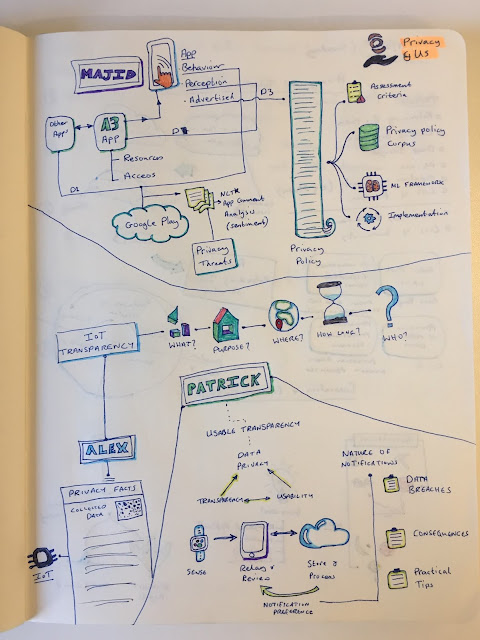 Privacy
& Us
MAJID
App
Behaviour
Perception
· Advertised
D3
Assessment
criteria
Other
App
A3
App
Resources
Access
D1
Privacy policy
Corpus
ML FRAMEWORK
Implementation
Google Play
App Comment
Analysis
(sentiment)
Privacy
Threats
Privacy
Policy
IoT
TRANSPARENCY
WHAT?
PURPOSE?
WHERE?
HOW LONG?
WHO?
PATRICK
USABLE TRANSPARENCY
DATA
PRIVACY
TRANSPARENCY
USABILITY
NATURE OF
NOTIFICATIONS
DATA
BREACHES
CONSEQUENCES
Practical
Tips
ALEX
PRIVACY FACTS
COLLECTED
DATA
IoT
SENSE
Relay &
Review
Store &
Process
NOTIFICATION
PREFERENCE